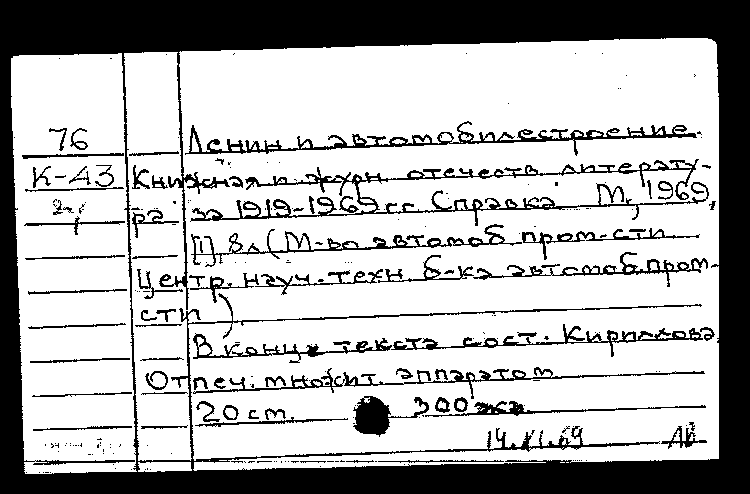 76 Ленин и автомобилестроение.
К-43 Книжная и журн. отечеств литерату-
ра за 1919-1969 гг. Справка М., 1969.
[1], 8 л (М-во автомоб пром-сти
Центр. науч.-техн. б-ка автомоб. пром-
сти).
В конце текста сост. Кириллова
Отпеч. множит. аппаратом
20 см. 300 экз.
14.XI.69 АВ